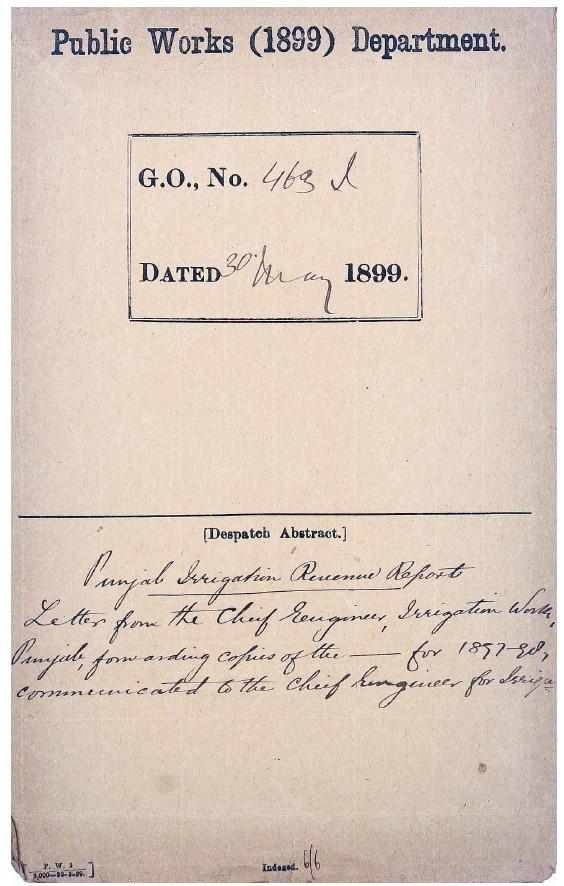 Public Works (1899) Department.
G.O., No. 463 I
DATED 30 May 1899.
[Despatch Abstract.]
Punjab Irrigation Revenue Reports
Letter from the Chief Engineer, Irrigation Works,
Punjab, forwarding copies of the — for 1897-98,
communicated to the Chief Engineer for Irriga-
P. W. 3
Indexed. 6/6